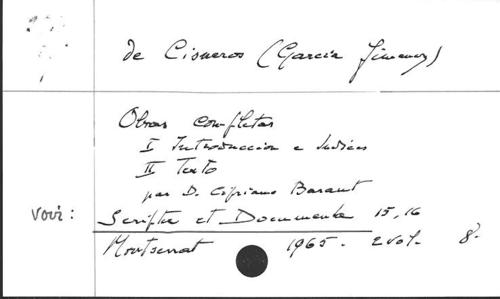 de Cisneros (Garcia Jimenez)
Obras completas
I Introduccion e Indices
II Texto
par D. Cipriano Baraut
voir : Scripta et Documenta 15, 16
Montserrat 1965. 2 vol. 8.